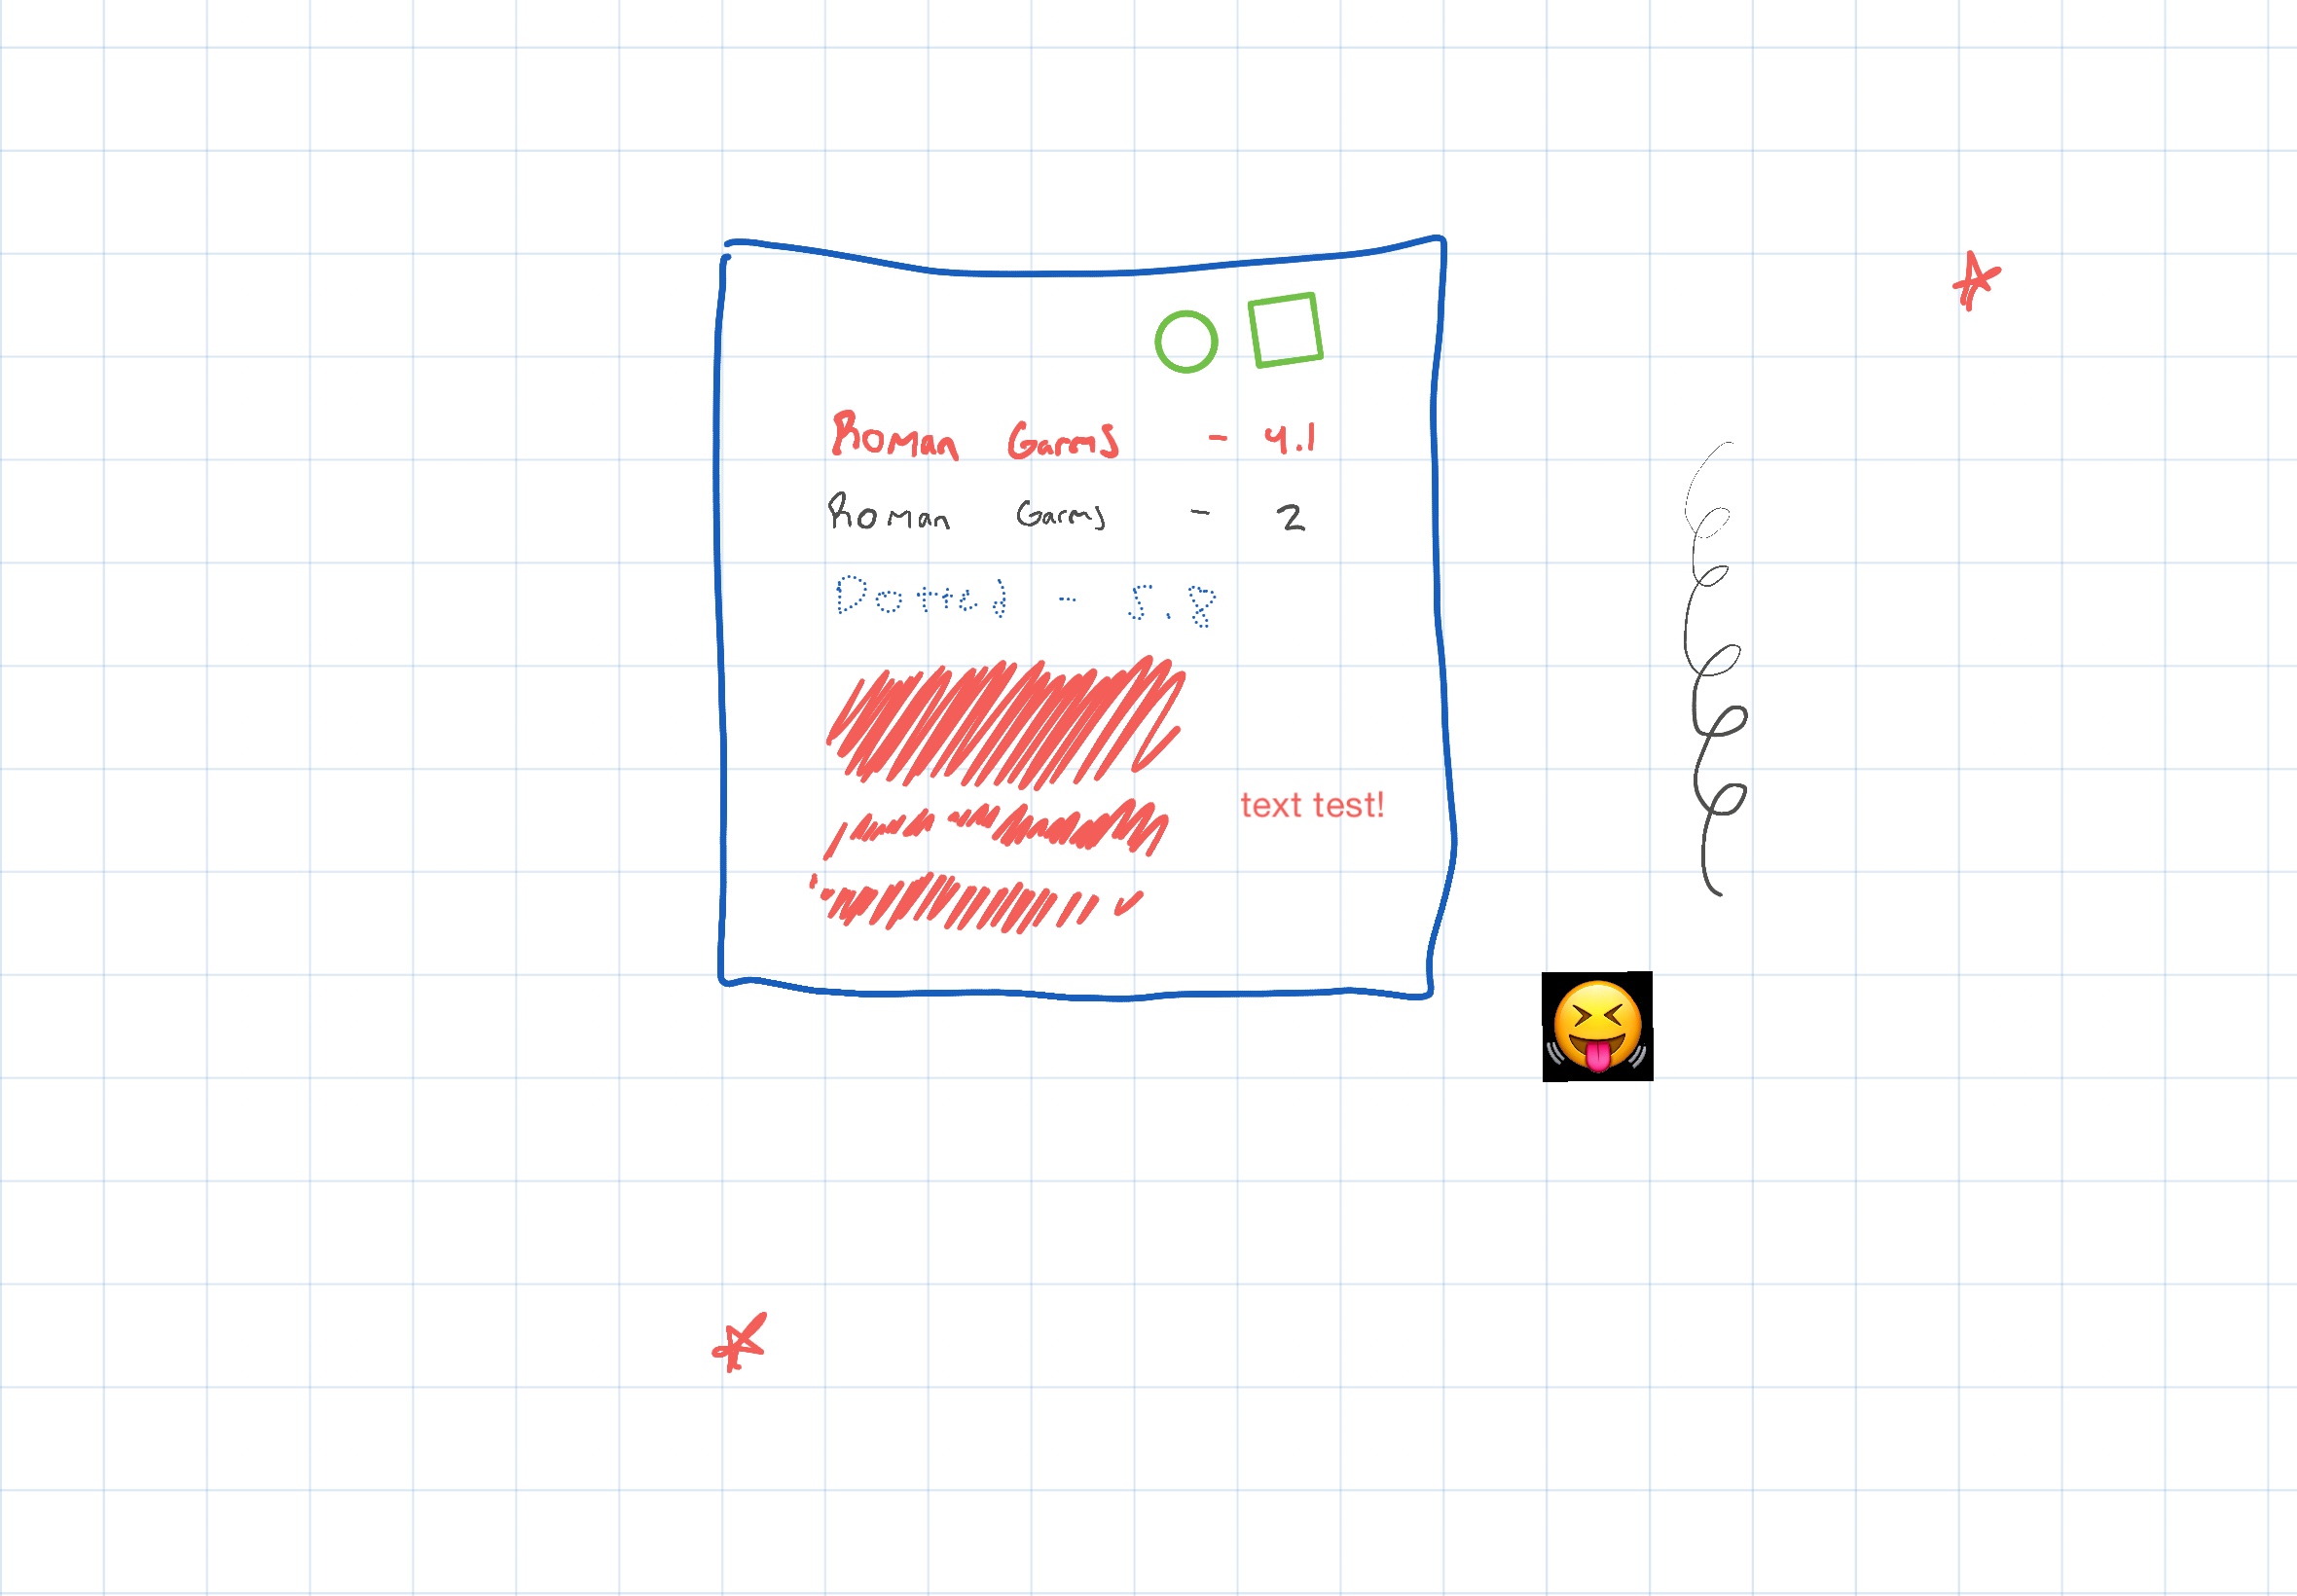 Roman Garms - 4.1
Roman Garms - 2
Dotted - 5.8
text test!